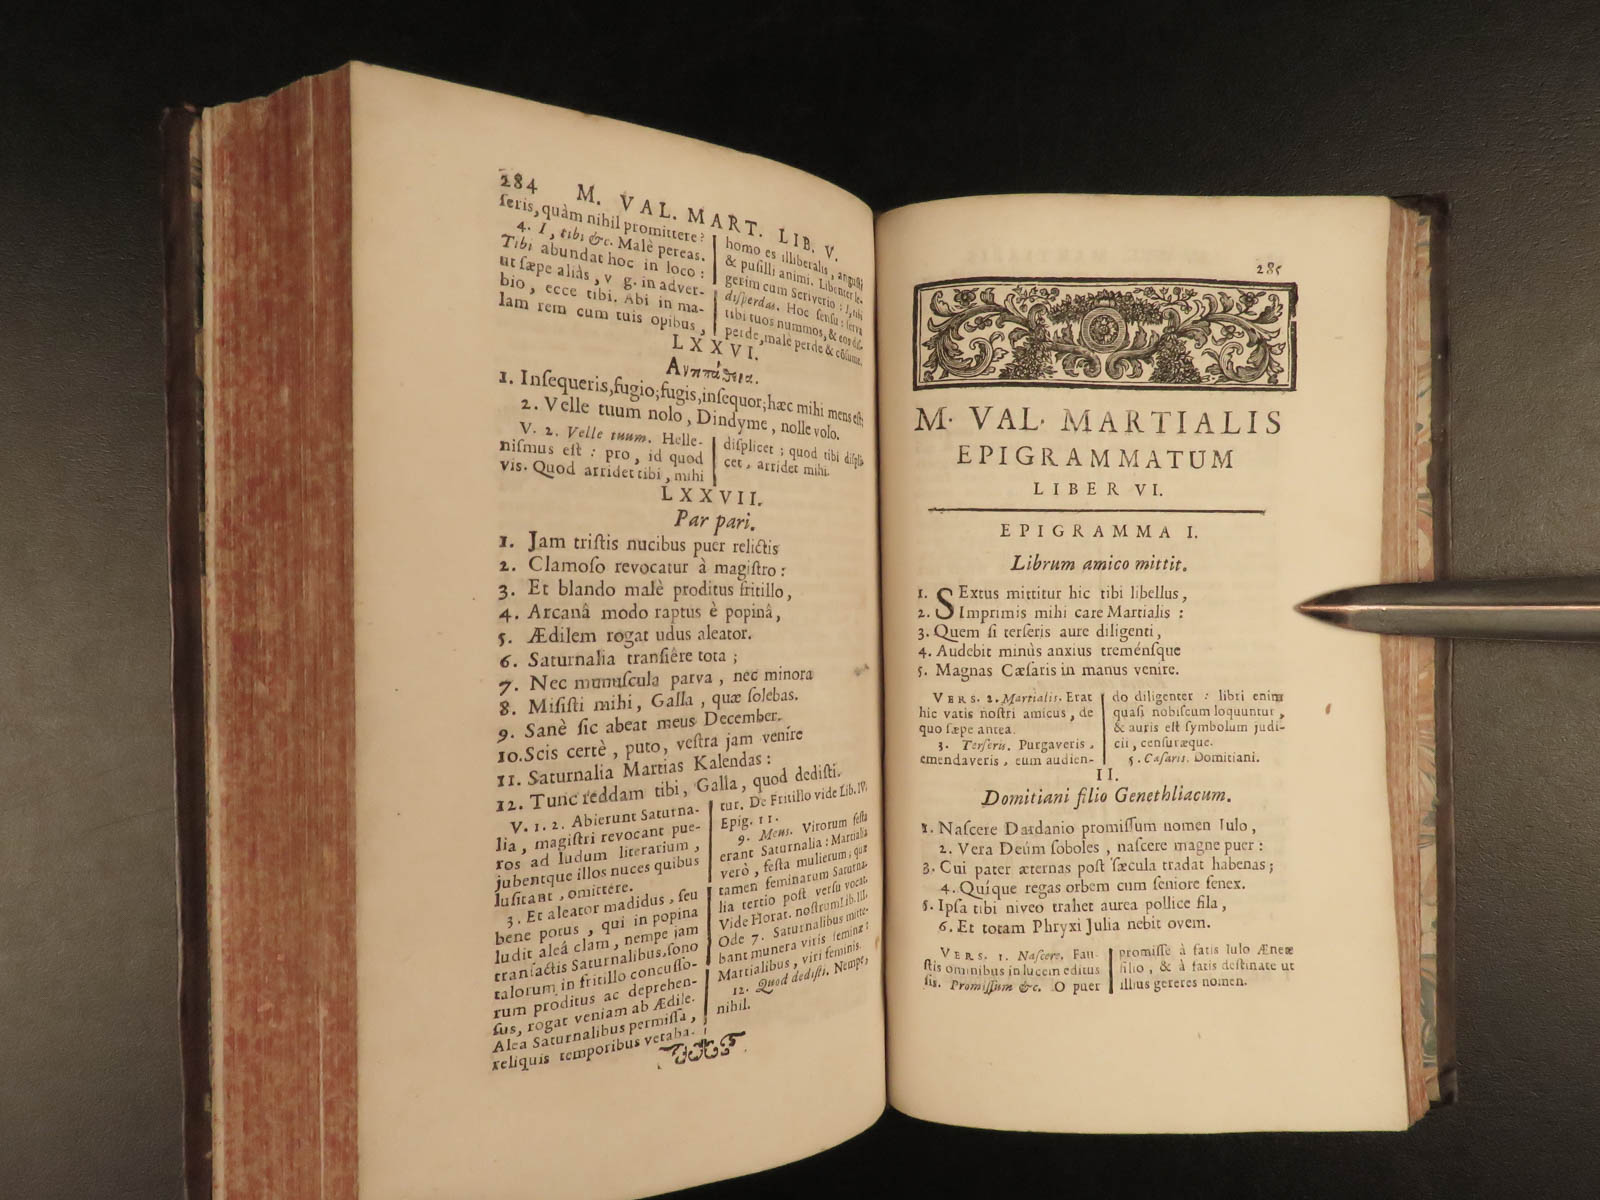 284 M. VAL. MART. LIB. V.
ſeris, quàm nihil promittere?
4. I, tibi &c. Malè pereas.
Tibi abundat hoc in loco:
ut ſæpe aliàs, v g. in adver-
bio, ecce tibi. Abi in ma-
lam rem cum tuis opibus,
homo es illiberalis, anguſti
& puſilli animi. Libenter le-
gerim cum Scriverio: I, tibi
diſperdas. Hoc ſenſu: ſerva
tibi tuos nummos, & eos diſ-
perde, malè perde & cõſume.
LXXVI.
1. Inſequeris, fugio; fugis, inſequor; hæc mihi mens eſt;
2. Velle tuum nolo, Dindyme, nolle volo.
V. 2. Velle tuum. Helle-
niſmus eſt: pro, id quod
vis. Quod arridet tibi, mihi
diſplicet; quod tibi diſpli-
cet, arridet mihi.
LXXVII.
Par pari.
1. Jam triſtis nucibus puer relictis
2. Clamoſo revocatur à magiſtro:
3. Et blando malè proditus fritillo,
4. Arcanâ modo raptus è popinâ,
5. Ædilem rogat udus aleator.
6. Saturnalia tranſiêre tota;
7. Nec munuſcula parva, nec minora
8. Miſiſti mihi, Galla, quæ ſolebas.
9. Sanè ſic abeat meus December.
10. Scis certè, puto, veſtra jam venire
11. Saturnalia Martias Kalendas:
12. Tunc reddam tibi, Galla, quod dediſti.
V. 1. 2. Abierunt Saturna-
lia, magiſtri revocant pue-
ros ad ludum literarium,
jubentque illos nuces quibus
luſitant, omittere.
3. Et aleator madidus, ſeu
bene potus, qui in popina
ludit aleá clam, nempe jam
tranſactis Saturnalibus, ſono
talorum in fritillo concuſſo-
rum proditus ac deprehen-
ſus, rogat veniam ab Ædile.
Alea Saturnalibus permiſſa,
reliquis temporibus vetaba-
tur. De Fritillo vide Lib. IV.
Epig. 11.
9. Meus. Virorum feſta
erant Saturnalia: Martialia
verò, feſta mulierum; quæ
tamen feminarum Saturna-
lia tertio poſt verſu vocat.
Vide Horat. noſtrum Lib. III.
Ode 7. Saturnalibus mitte-
bant munera viris feminæ:
Martialibus, viri feminis.
12. Quod dediſti. Nempe,
nihil.
285
M. VAL. MARTIALIS
EPIGRAMMATUM
LIBER VI.
EPIGRAMMA I.
Librum amico mittit.
1. SExtus mittitur hic tibi libellus,
2. Imprimis mihi care Martialis:
3. Quem ſi terſeris aure diligenti,
4. Audebit minùs anxius treménſque
5. Magnas Cæſaris in manus venire.
VERS. 2. Martialis. Erat
hic vatis noſtri amicus, de
quo ſæpe antea.
3. Terſeris. Purgaveris,
emendaveris, eum audien-
do diligenter: libri enim
quaſi nobiſcum loquuntur,
& auris eſt ſymbolum judi-
cii, cenſuræque.
5. Cæſaris. Domitiani.
II.
Domitiani filio Genethliacum.
1. Naſcere Dardanio promiſſum nomen Iulo,
2. Vera Deûm ſoboles, naſcere magne puer:
3. Cui pater æternas poſt ſæcula tradat habenas;
4. Quíque regas orbem cum ſeniore ſenex.
5. Ipſa tibi niveo trahet aurea pollice fila,
6. Et totam Phryxi Julia nebit ovem.
VERS. 1. Naſcere. Fau-
ſtis ominibus in lucem editus
ſis. Promiſſum &c. O puer
promiſſe à fatis Iulo Æneæ
filio, & à fatis deſtinate ut
illius gereres nomen.